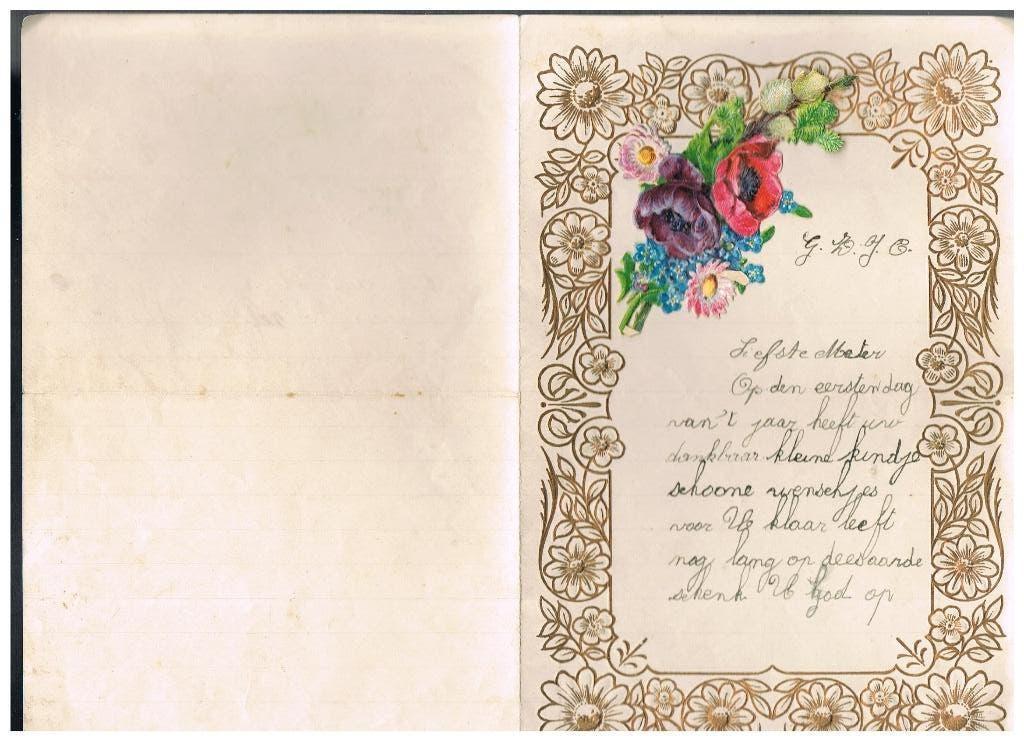 G. Z. J. C.
Liefste Meter
Op den eersten dag
van't jaar heeft uw
dankbaar kleine kindje
schoone wenschjes
voor U klaar leeft
nog lang op dees aarde
schenk U God op